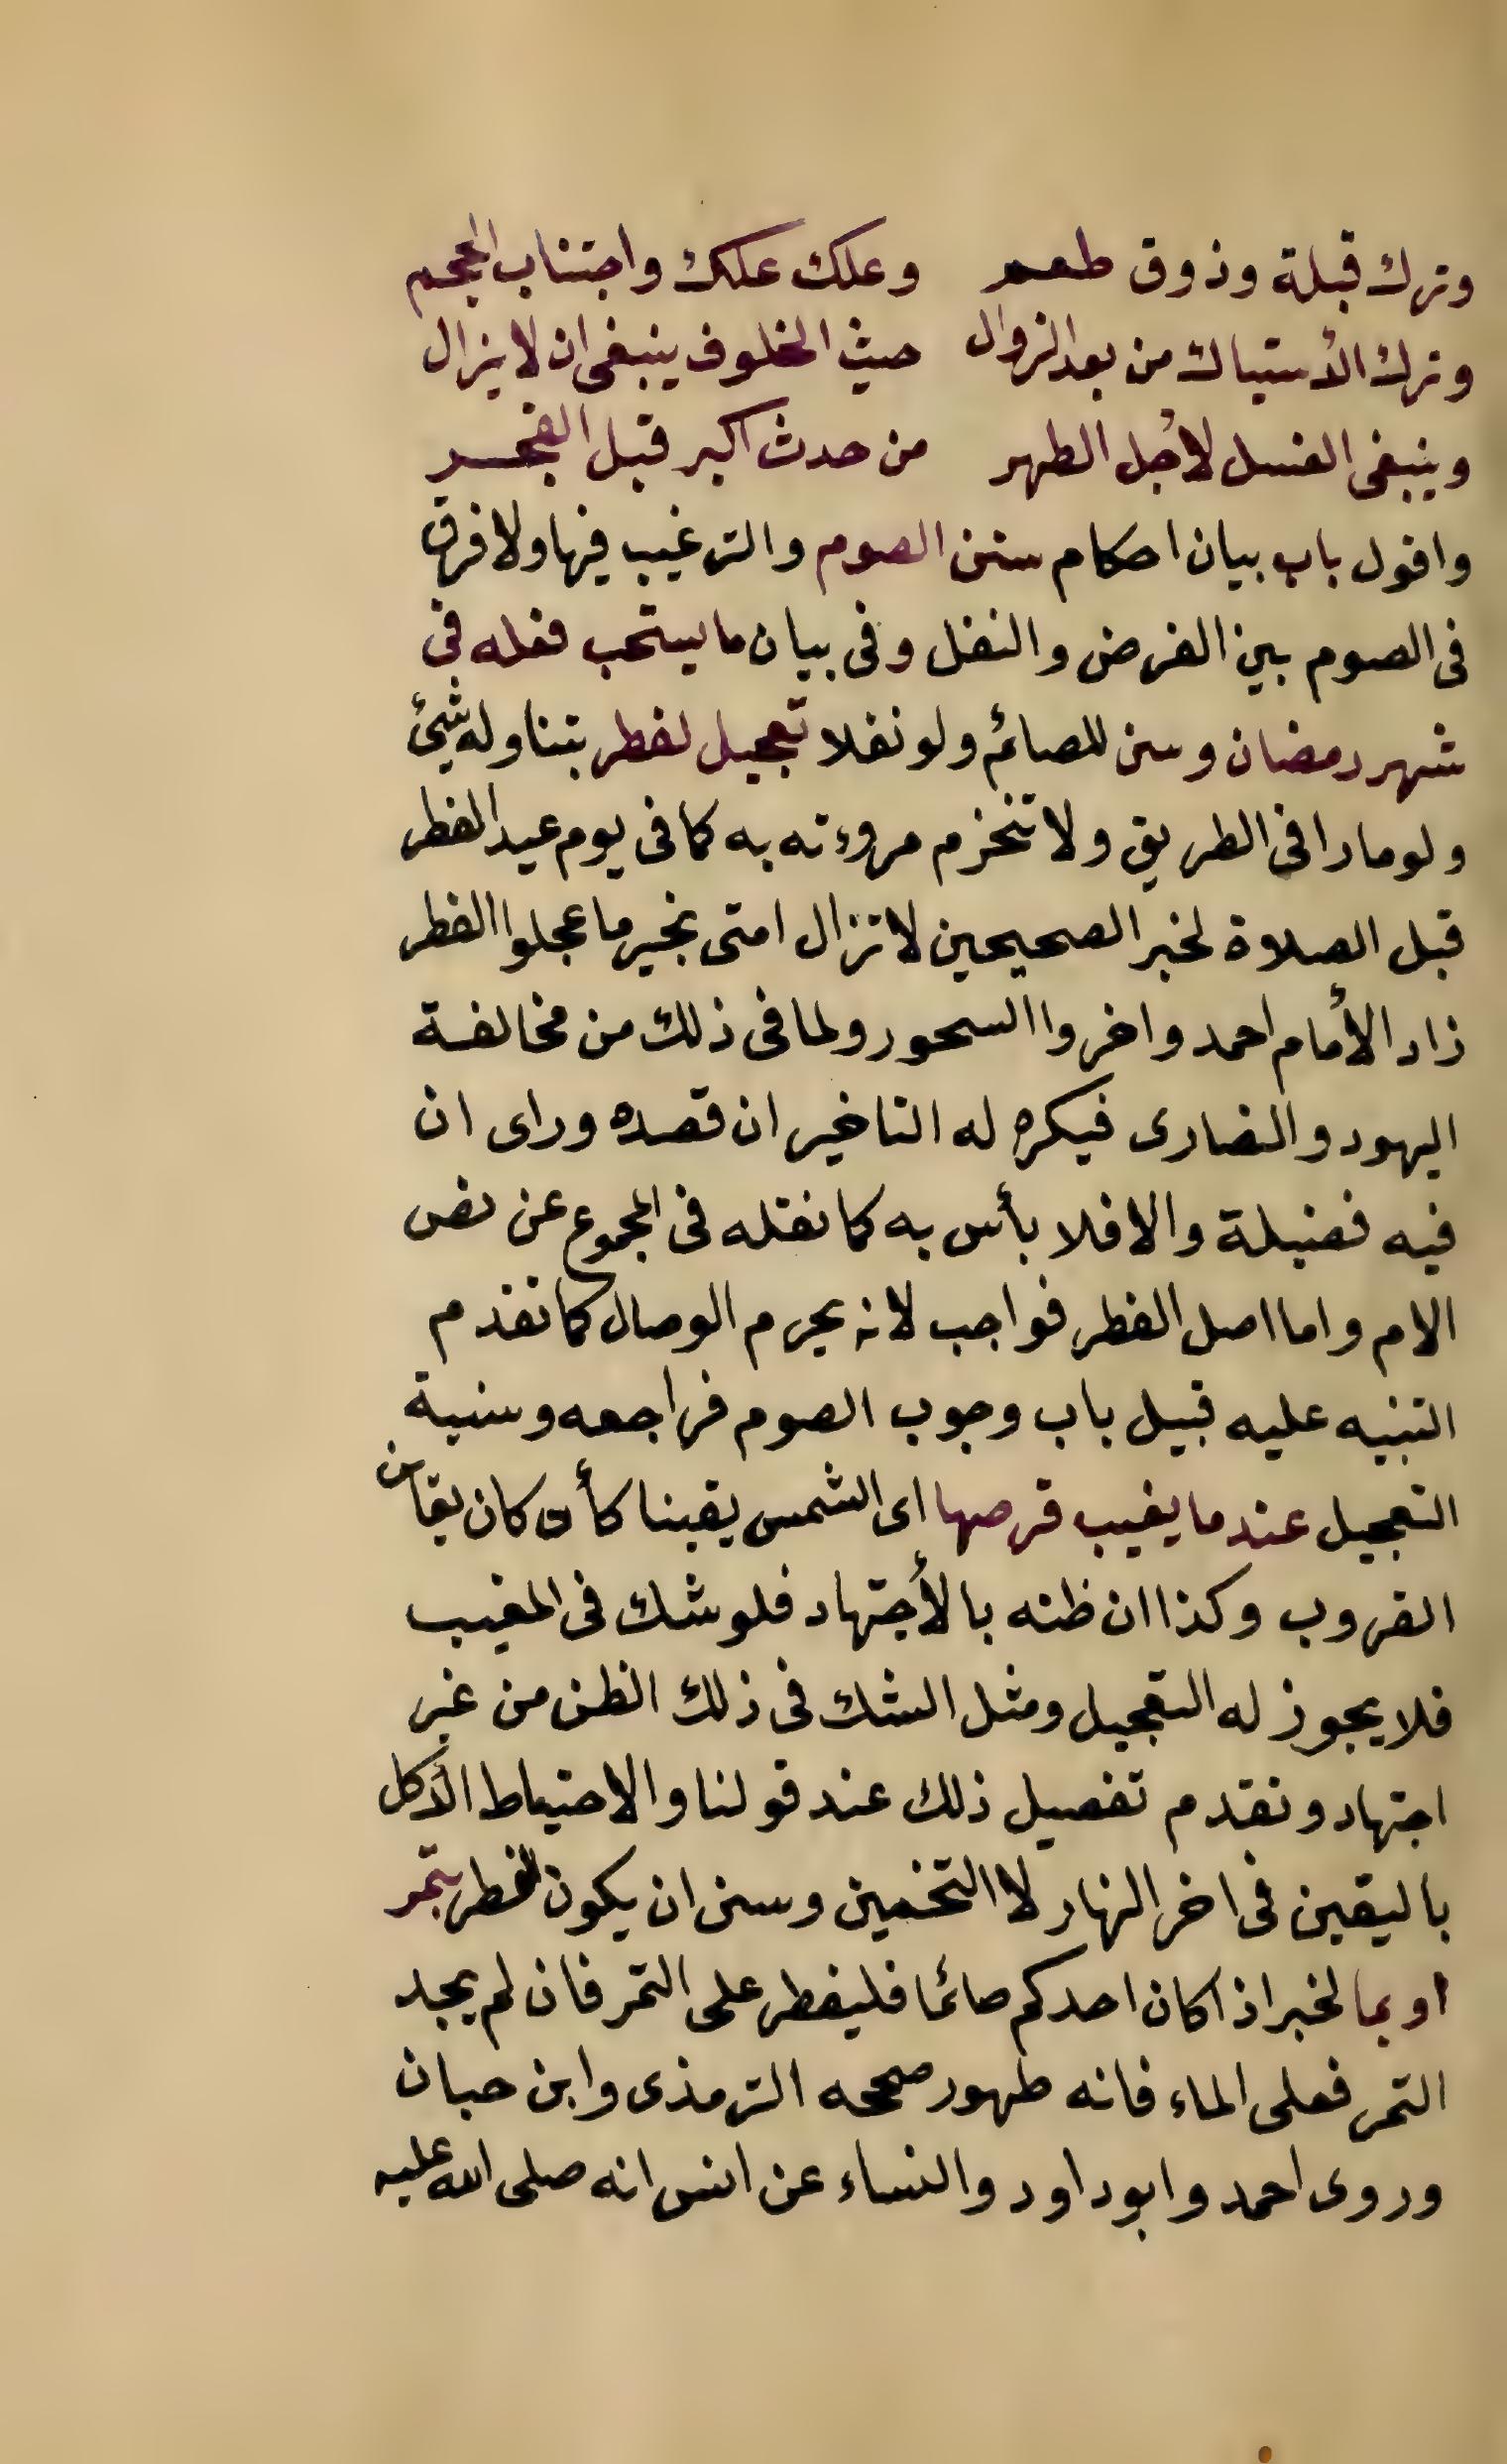 وترك قبلة وذوق طعم وعلك علك واجتناب الحجم
وترك الأستياك من بعد الزوال حيث الخلوف ينبغى ان لا يزال
وينبغى الغسل لأجل الطهر من حدث اكبر قبل الفجر
واقول باب بيان احكام سنن الصوم والترغيب فيها ولا فرق
فى الصوم بين الفرض والنفل وفى بيان ما يستحب فعله فى
شهر رمضان وسن للصائم ولو نفلا تعجيل لفطر بتناوله شيئ
ولو مارا فى الطريق ولا تنخزم مروءته به كما فى يوم عيد الفطر
قبل الصلاة لخبر الصحيحين لا تزال امتى بخير ما عجلوا الفطر
زاد الأمام احمد واخروا السحور ولما فى ذلك من مخالفة
اليهود والنصارى فيكره له التاخير ان قصده وراى ان
فيه فضيلة والا فلا بأس به كما نقله فى المجموع عن نص
الام واما اصل الفطر فواجب لانه يحرم الوصال كما تقدم
التنبيه عليه قبيل باب وجوب الصوم فراجعه وسنية
التعجيل عندما يغيب قرصها اى الشمس يقينا كأن كان يقاين
الغروب وكذا ان ظنه بالأجتهاد فلو شك فى المغيب
فلا يجوز له التعجيل ومثل الشك فى ذلك الظن من غير
اجتهاد وتقدم تفصيل ذلك عند قولنا والاحتياط الأكل
باليقين فى اخر النهار لا التخمين وسن ان يكون الفطر بتمر
او بما لخبر اذا كان احدكم صائما فليفطر على التمر فان لم يجد
التمر فعلى الماء فانه طهور صححه الترمذى وابن حبان
وروى احمد وابو داود والنساء عن انس انه صلى الله عليه